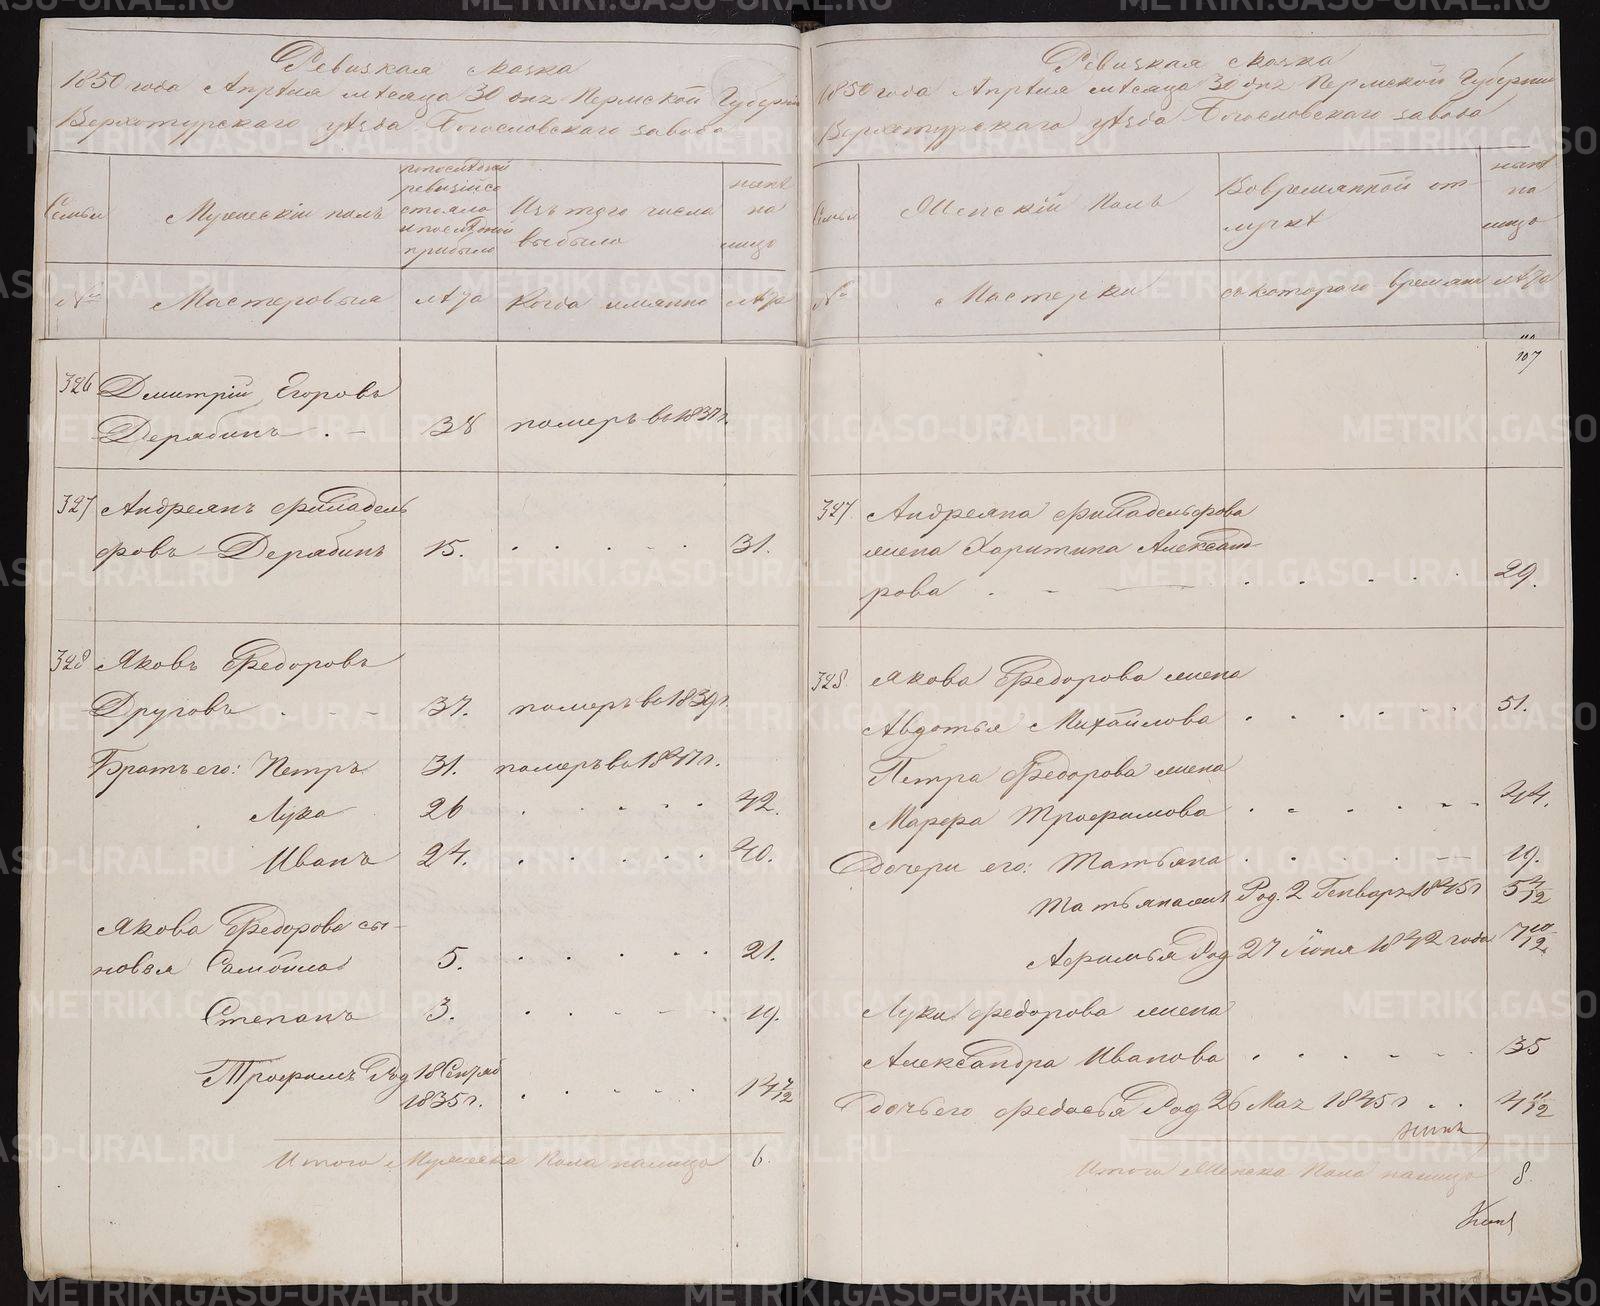 Ревизкая сказка
1850 года Апреля месяца 30 дня Пермской Губерніи
Верхотурскаго уѣзда Богословскаго завода
Семьи
Мужескій полъ
по последней
ревизіи со
стояло
и после оной
прибыло
Изъ того числа
выбыло
ныне
на
лицо
№
Мастеровыя
лѣта
Когда имянно
лѣта
326
Дмитрій Егоровъ
Дерябинъ
38
померъ въ 1837 г.
327
Андреянъ Филадель
фовъ Дерябинъ
15.
31.
328
Яковъ Федоровъ
Друговъ
37.
померъ въ 1839 г.
Братья его: Петръ
31.
померъ въ 1847 г.
Лука
26
42.
Иванъ
24.
40.
Якова Федорова сы-
новья Самойла
5.
21.
Степанъ
3.
19.
Трофимъ Род. 18 Сентяб
1835 г.
14 7/12
Итого Мужеска Пола налицо 6.
Ревизкая сказка
1850 года Апреля месяца 30 дня Пермской Губерніи
Верхотурскаго уѣзда Богословскаго завода
Семьи
Женскій Полъ
Вовремянной от-
лучкѣ
ныне
на
лицо
№
Мастерки
съ котораго времяни
лѣта
107
327
Андреяна Филадельфова
жена Харитина Александ-
рова
29.
328.
Якова Федорова жена
Авдотья Михайлова
51.
Петра Федорова жена
Марфа Трофимова
44.
Дочери его: Татьяна
19.
Татьяна Род. 2 Генваря 1845 г
5 4/12
Афимья Род 27 Іюня 1842 года
7 10/12
Луки Федорова жена
Александра Иванова
35
Дочь его Федосья Род 26 Мая 1845 г
4 11/12
Итого Женска Пола налицо 8.